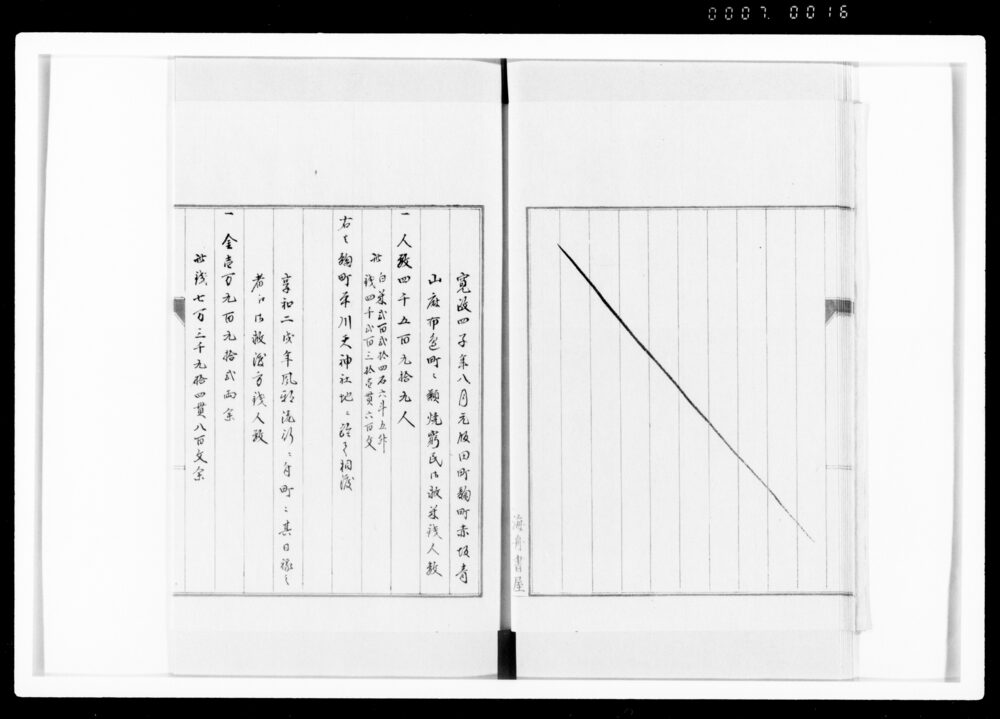 0007 0016
海舟書屋
寛政四子年八月元飯田町麹町赤坂青
山麻布辺町々類焼窮民御救米銭人数
一人数四千五百九拾九人
此
白米弐百弐拾四石六斗五升
銭四千弐百三拾壱貫六百文
右者麹町平川天神社地ニ
相渡
享和二戌年風邪流行ニ付町々其日稼之
者江御救渡方銭人数
一金壱万九百九拾弐両余
此銭七万三千九拾四貫八百文余